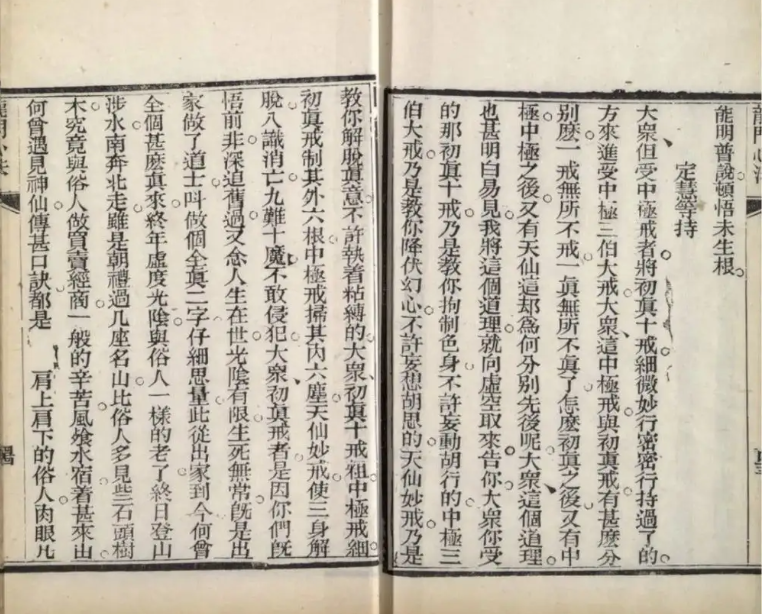 龍門心法
能明普說頓悟未生根
定慧等持
大衆但受中極戒者將初眞十戒細微妙行密密行持過了的
方來進受中極三伯大戒大衆這中極戒與初眞戒有甚麽分
別麽一戒無所不戒一眞無所不眞了怎麽初眞之後又有中
極中極之後又有天仙這却爲何分別先後呢大衆這個道理
也甚明白易見我將這個道理就向虛空取來告你大衆你受
的那初眞十戒乃是教你拘制色身不許妄動胡行的中極三
伯大戒乃是教你降伏幻心不許妄想胡思的天仙妙戒乃是
教你解脫眞意不許執着粘縛的大衆初眞十戒粗中極戒細
初眞戒制其外六根中極戒掃其內六塵天仙妙戒使三身解
脫八識消亡九難十魔不敢侵犯大衆初眞戒者是因你們旣
悟前非深追舊過又念人生在世光陰有限生死無常旣是出
家做了道士呌做個全眞二字仔細思量此從出家到今何曾
全個甚麽眞來終年虛度光陰與俗人一樣的老了終日登山
涉水南奔北走雖是朝禮過几座名山比俗人多見些石頭樹
木究竟與俗人做買賣經商一般的辛苦風飧水宿着甚來由
何曾遇見神仙傳甚口訣都是 肩上肩下的俗人肉眼凡
龍門心法